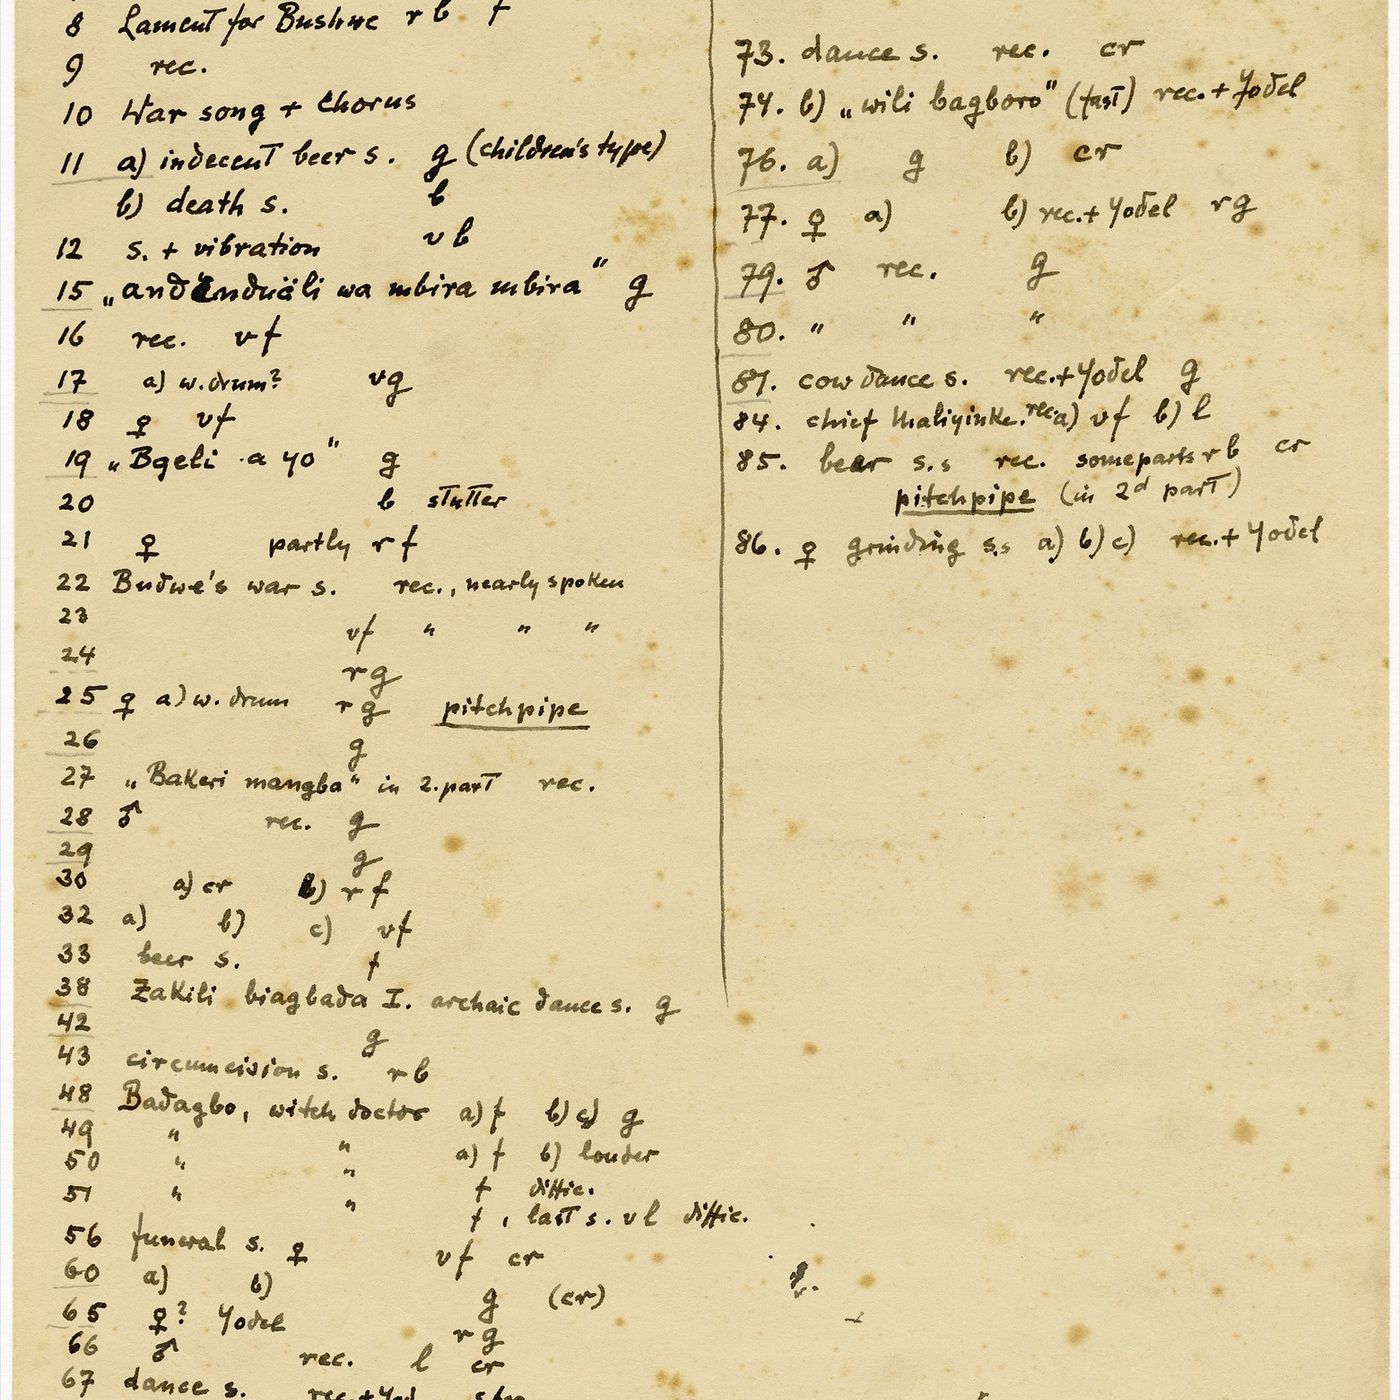 8 Lament for Bushwe r b f
9 rec.
10 War song + Chorus
11 a) indecent beer s. g (children's type)
b) death s. b
12 s. + vibration v b
15 „andända̋li wa mbira mbira" g
16 rec. v f
17 a) w. drum? vg
18 ♀ vf
19 „Bgeli a yo" g
20 b stutter
21 ♀ partly r f
22 Budwe's war s. rec., nearly spoken
23 vf " " "
24 r g
25 ♀ a) w. drum r g pitchpipe
26 g
27 „Bakeri mangba" in 2. part rec.
28 ♂ rec. g
29 g
30 a) cr b) r f
32 a) b) c) vf
33 beer s. f
38 Zakili biagbada I. archaic dance s. g
42 g
43 circumcision s. r b
48 Badagbo, witch doctor a) f b) c) g
49 " " a) f b) louder
50 " " f diffic.
51 " " f, last s. v l diffic.
56 funeral s. ♀ vf cr
60 a) b) g (cr)
65 ♀? Yodel r g
66 ♂ rec. l cr
67 dance s. rec. + Yod
73. dance s. rec. cr
74. b) „wili bagboro" (fast) rec. + Yodel
76. a) g b) cr
77. ♀ a) b) rec. + Yodel r g
79. ♂ rec. g
80. " " "
81. cow dance s. rec. + Yodel g
84. chief Maliyinke. rec. a) vf b) l
85. beer s.s rec. some parts r b cr
pitchpipe (in 2d part)
86. ♀ grinding s.s a) b) c) rec. + Yodel